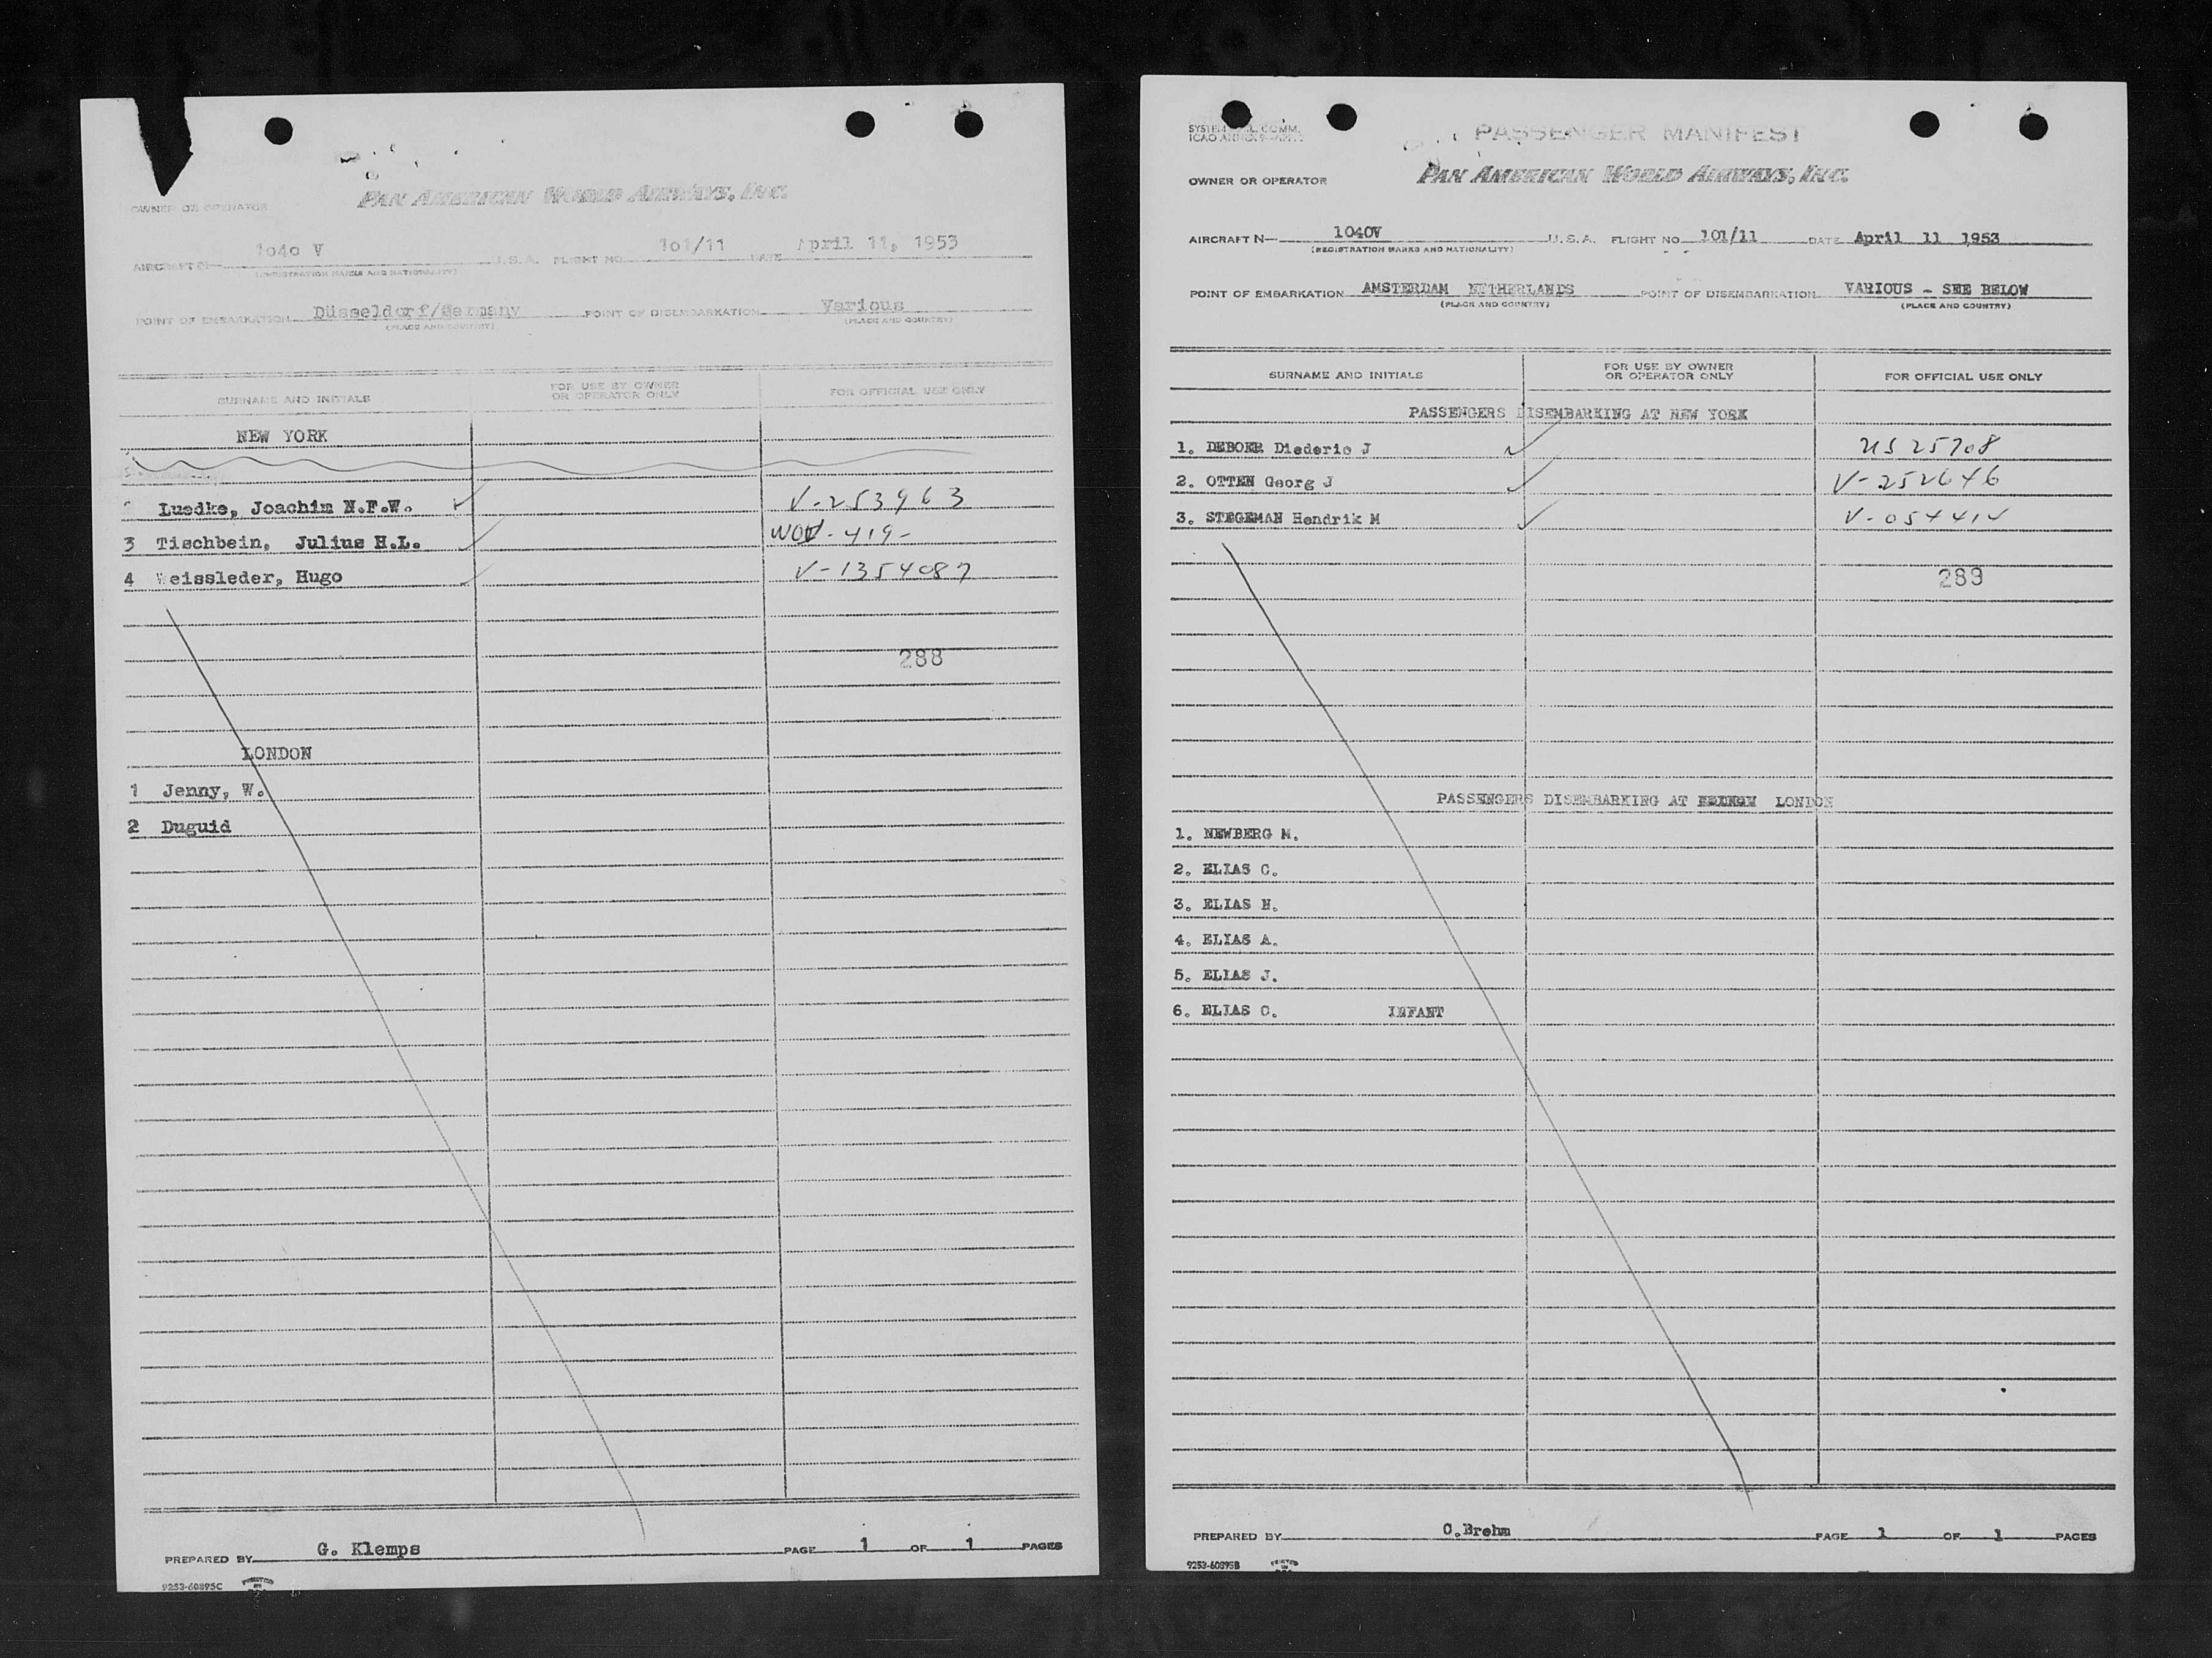 PAN AMERICAN WORLD AIRWAYS, INC.
OWNER OR OPERATOR
AIRCRAFT N— 1040 V U.S.A. FLIGHT NO. 101/11 DATE April 11, 1953
(REGISTRATION MARKS AND NATIONALITY)
POINT OF EMBARKATION Düsseldorf/Germany POINT OF DISEMBARKATION Various
(PLACE AND COUNTRY) (PLACE AND COUNTRY)
SURNAME AND INITIALS FOR USE BY OWNER OR OPERATOR ONLY FOR OFFICIAL USE ONLY
NEW YORK
Luedke, Joachim N.F.W. ✓ V-253963
3 Tischbein, Julius H.L. ✓ -419-
4 Weissleder, Hugo ✓ V-1354087
288
LONDON
1 Jenny, W.
2 Duguid
PREPARED BY G. Klemps PAGE 1 OF 1 PAGES
9253-60895C
PASSENGER MANIFEST
OWNER OR OPERATOR PAN AMERICAN WORLD AIRWAYS, INC.
AIRCRAFT N— 1040V U.S.A. FLIGHT NO 101/11 DATE April 11 1953
(REGISTRATION MARKS AND NATIONALITY)
POINT OF EMBARKATION AMSTERDAM NETHERLANDS POINT OF DISEMBARKATION VARIOUS - SEE BELOW
(PLACE AND COUNTRY) (PLACE AND COUNTRY)
SURNAME AND INITIALS FOR USE BY OWNER OR OPERATOR ONLY FOR OFFICIAL USE ONLY
PASSENGERS DISEMBARKING AT NEW YORK
1. DEBOER Diederic J ✓ US 25708
2. OTTEN Georg J ✓ V-252646
3. STEGEMAN Hendrik M ✓
289
PASSENGERS DISEMBARKING AT LONDON
1. NEWBERG M.
2. ELIAS C.
3. ELIAS H.
4. ELIAS A.
5. ELIAS J.
6. ELIAS C. INFANT
PREPARED BY C.Brehm PAGE 1 OF 1 PAGES
9253-60895B